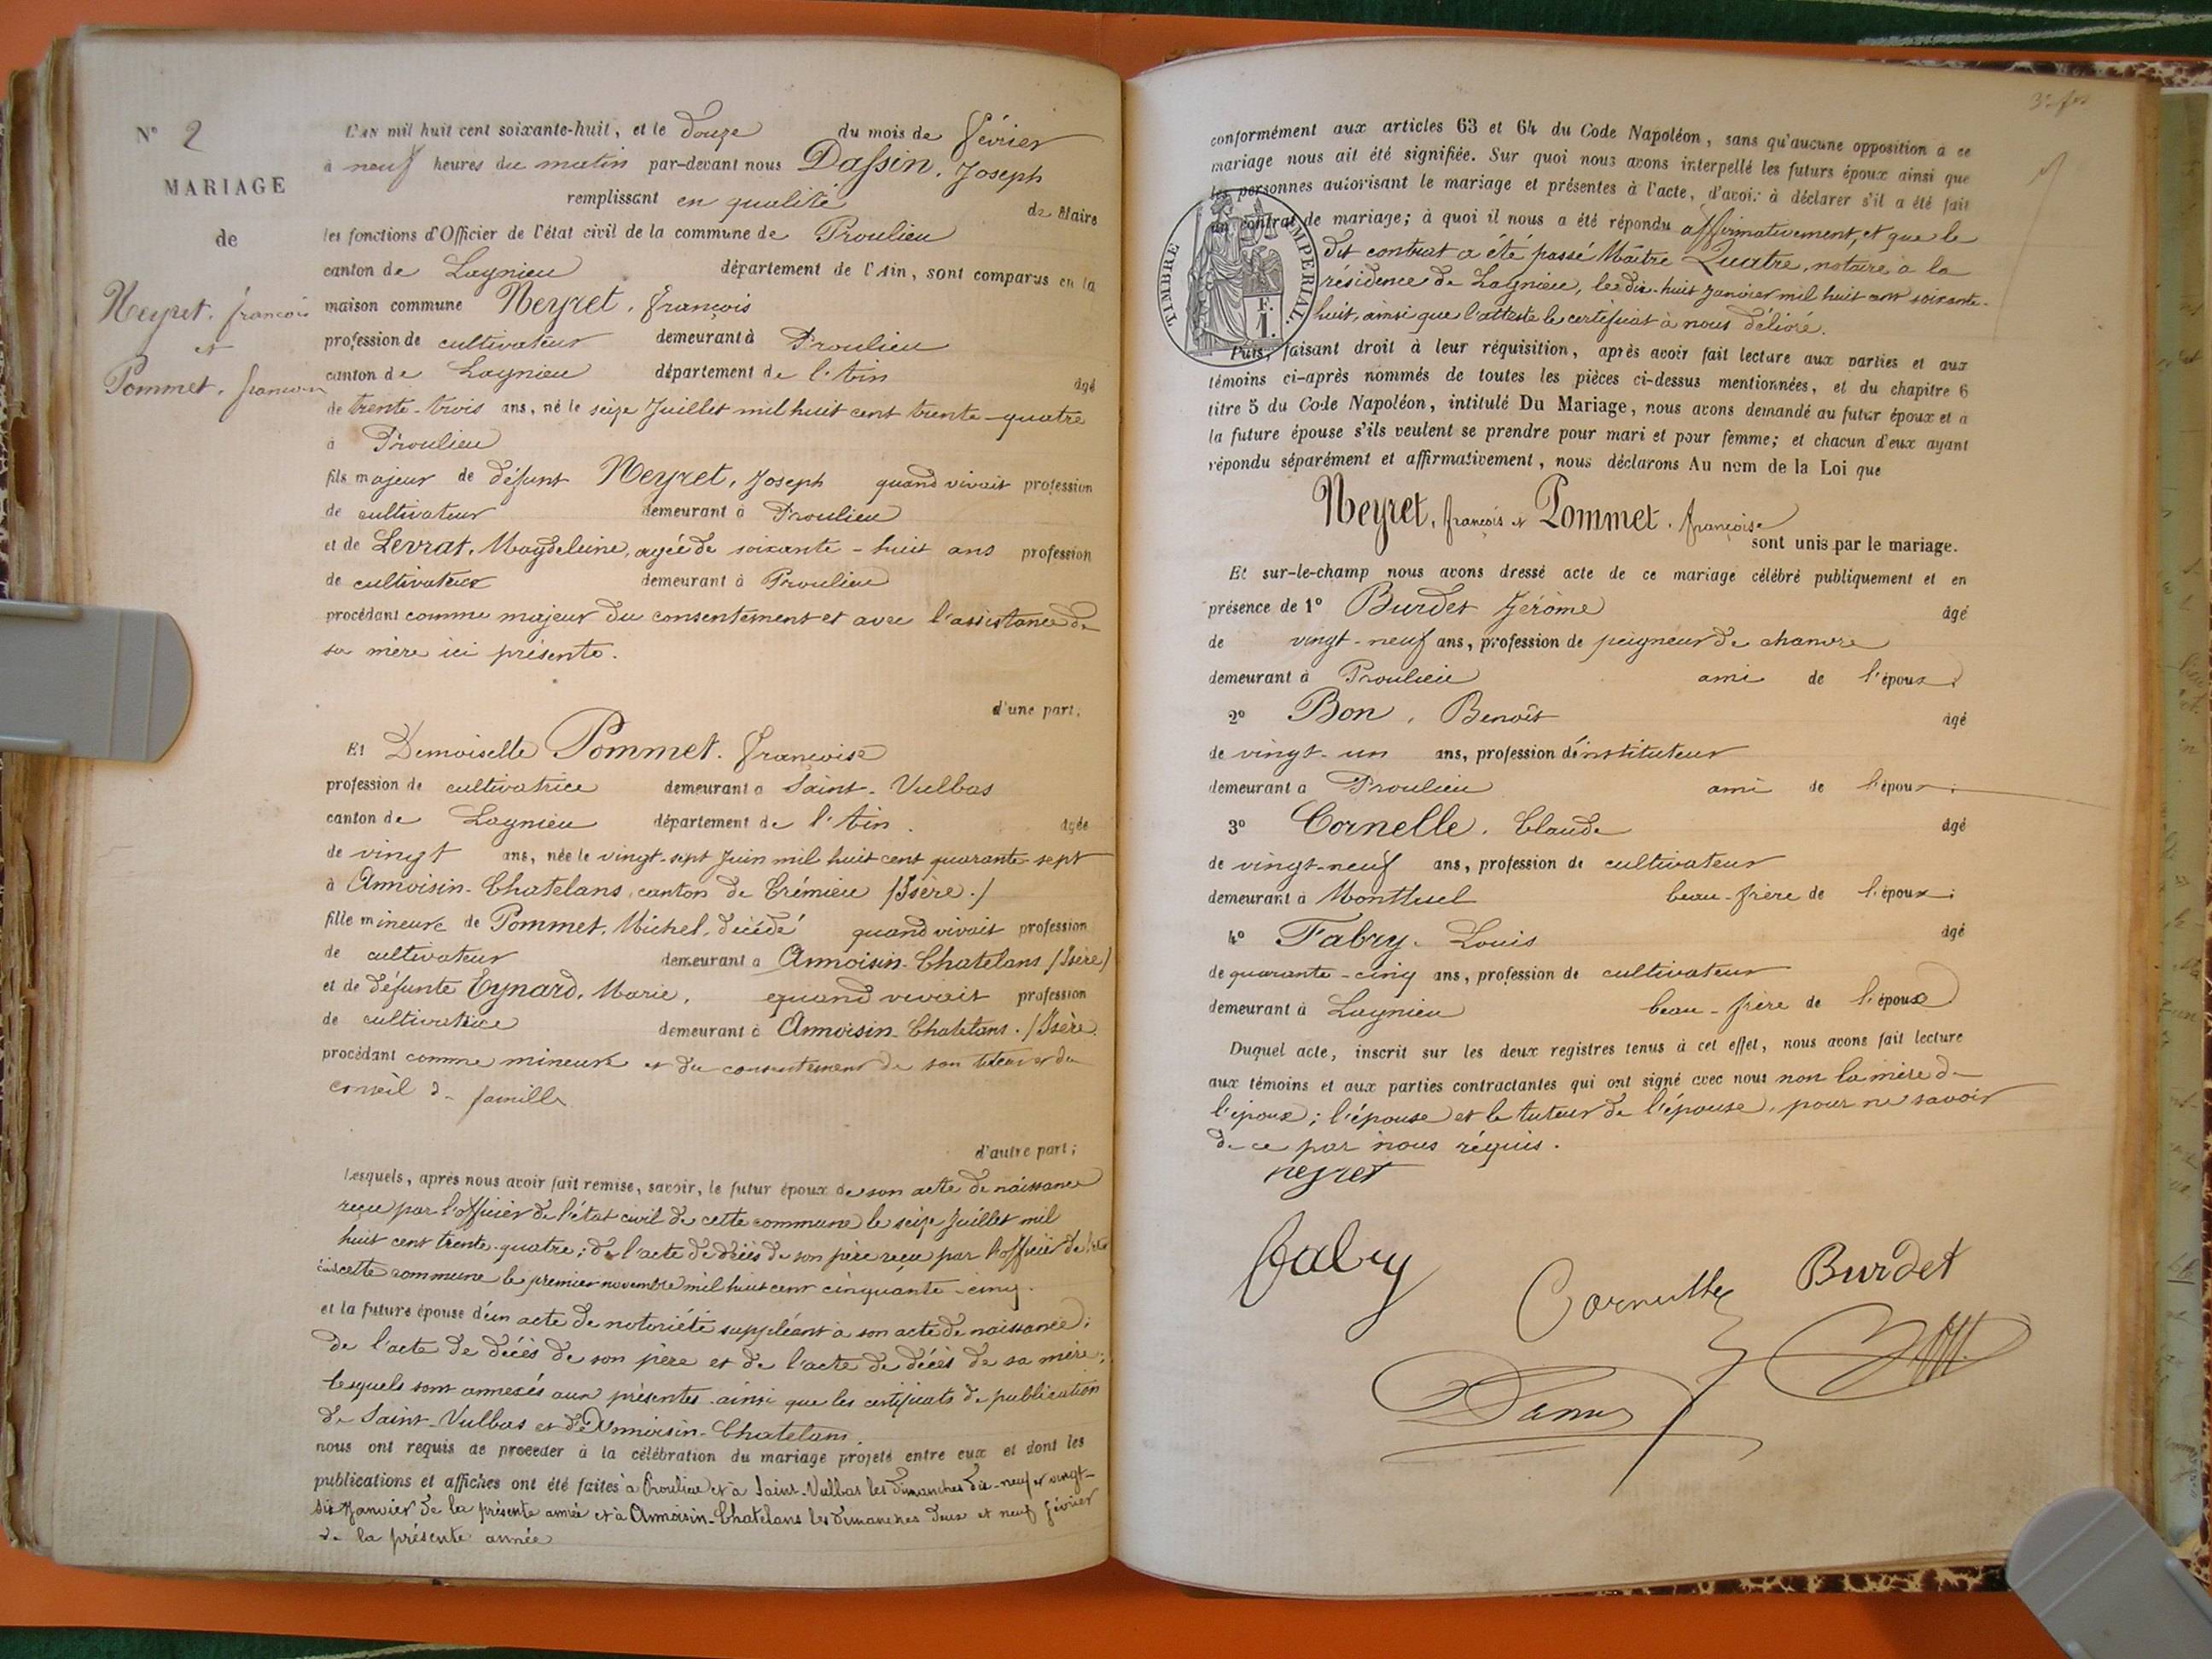 N° 2
MARIAGE
de
Neyret, françois
et
Pommet, françoise
L'AN mil huit cent soixante-huit, et le douze du mois de février
à neuf heures du matin par-devant nous Dassin, Joseph
remplissant en qualité de Maire
les fonctions d'Officier de l'état civil de la commune de Proulieu
canton de Lagnieu département de l'Ain, sont comparus en la
maison commune Neyret, françois
profession de cultivateur demeurant à Proulieu
canton de Lagnieu département de l'Ain âgé
de trente-trois ans, né le seize Juillet mil huit cent trente-quatre
à Proulieu
fils majeur de défunt Neyret, Joseph quand vivait profession
de cultivateur demeurant à Proulieu
et de Levrat, Magdeleine, agée de soixante-huit ans profession
de cultivateur demeurant à Proulieu
procédant comme majeur du consentement et avec l'assistance de
sa mère ici présente.
d'une part;
Et Demoiselle Pommet, françoise
profession de cultivatrice demeurant à Saint-Vulbas
canton de Lagnieu département de l'Ain. âgée
de vingt ans, née le vingt-sept Juin mil huit cent quarante-sept
à Annoisin-Chatelans, canton de Crémieu (Isère.)
fille mineure de Pommet, Michel, décédé quand vivait profession
de cultivateur demeurant à Annoisin-Chatelans (Isère)
et de défunte Eynard, Marie, quand vivait profession
de cultivatrice demeurant à Annoisin-Chatelans. (Isère.
procédant comme mineure et du consentement de son tuteur et du
conseil de famille
d'autre part;
Lesquels, après nous avoir fait remise, savoir, le futur époux de son acte de naissance
reçu par l'officier de l'état civil de cette commune le seize Juillet mil
huit cent trente-quatre; de l'acte de décès de son père reçu par l'officier de l'état
civil cette commune le premier novembre mil huit cent cinquante-cinq.
et la future épouse d'un acte de notoriété suppléant à son acte de naissance;
de l'acte de décès de son père et de l'acte de décès de sa mère;
lesquels sont annexés aux présentes ainsi que les certificats de publication
de Saint-Vulbas et d'Annoisin-Chatelans.
nous ont requis de procéder à la célébration du mariage projeté entre eux et dont les
publications et affiches ont été faites à Proulieu et à Saint-Vulbas les dimanches dix-neuf et vingt-
six Janvier de la présente année et à Annoisin-Chatelans les dimanches deux et neuf février
de la présente année
conformément aux articles 63 et 64 du Code Napoléon, sans qu'aucune opposition à ce
mariage nous ait été signifiée. Sur quoi nous avons interpellé les futurs époux ainsi que
les personnes autorisant le mariage et présentes à l'acte, d'avoir à déclarer s'il a été fait
un contrat de mariage; à quoi il nous a été répondu affirmativement, et que le
dit contrat a été passé Maître Quatre, notaire à la
résidence de Lagnieu, le dix-huit Janvier mil huit cent soixante-
huit, ainsi que l'atteste le certificat à nous délivré.
TIMBRE IMPERIAL.
F.
1.
Puis, faisant droit à leur réquisition, après avoir fait lecture aux parties et aux
témoins ci-après nommés de toutes les pièces ci-dessus mentionnées, et du chapitre 6
titre 5 du Code Napoléon, intitulé Du Mariage, nous avons demandé au futur époux et à
la future épouse s'ils veulent se prendre pour mari et pour femme; et chacun d'eux ayant
répondu séparément et affirmativement, nous déclarons Au nom de la Loi que
Neyret, françois et Pommet, françoise
sont unis par le mariage.
Et sur-le-champ nous avons dressé acte de ce mariage célébré publiquement et en
présence de 1° Burdet Jérôme âgé
de vingt-neuf ans, profession de peigneur de chanvre
demeurant à Proulieu ami de l'époux;
2° Bon, Benoît âgé
de vingt-un ans, profession d'instituteur
demeurant à Proulieu ami de l'époux;
3° Cornelle, Claude âgé
de vingt-neuf ans, profession de cultivateur
demeurant à Montluel beau-frère de l'époux;
4° Fabry, Louis âgé
de quarante-cinq ans, profession de cultivateur
demeurant à Lagnieu beau-frère de l'époux
Duquel acte, inscrit sur les deux registres tenus à cet effet, nous avons fait lecture
aux témoins et aux parties contractantes qui ont signé avec nous non la mère de
l'époux; l'épouse et le tuteur de l'épouse, pour ne savoir
de ce par nous réquis.
neyret
fabry
Cornelle
Burdet